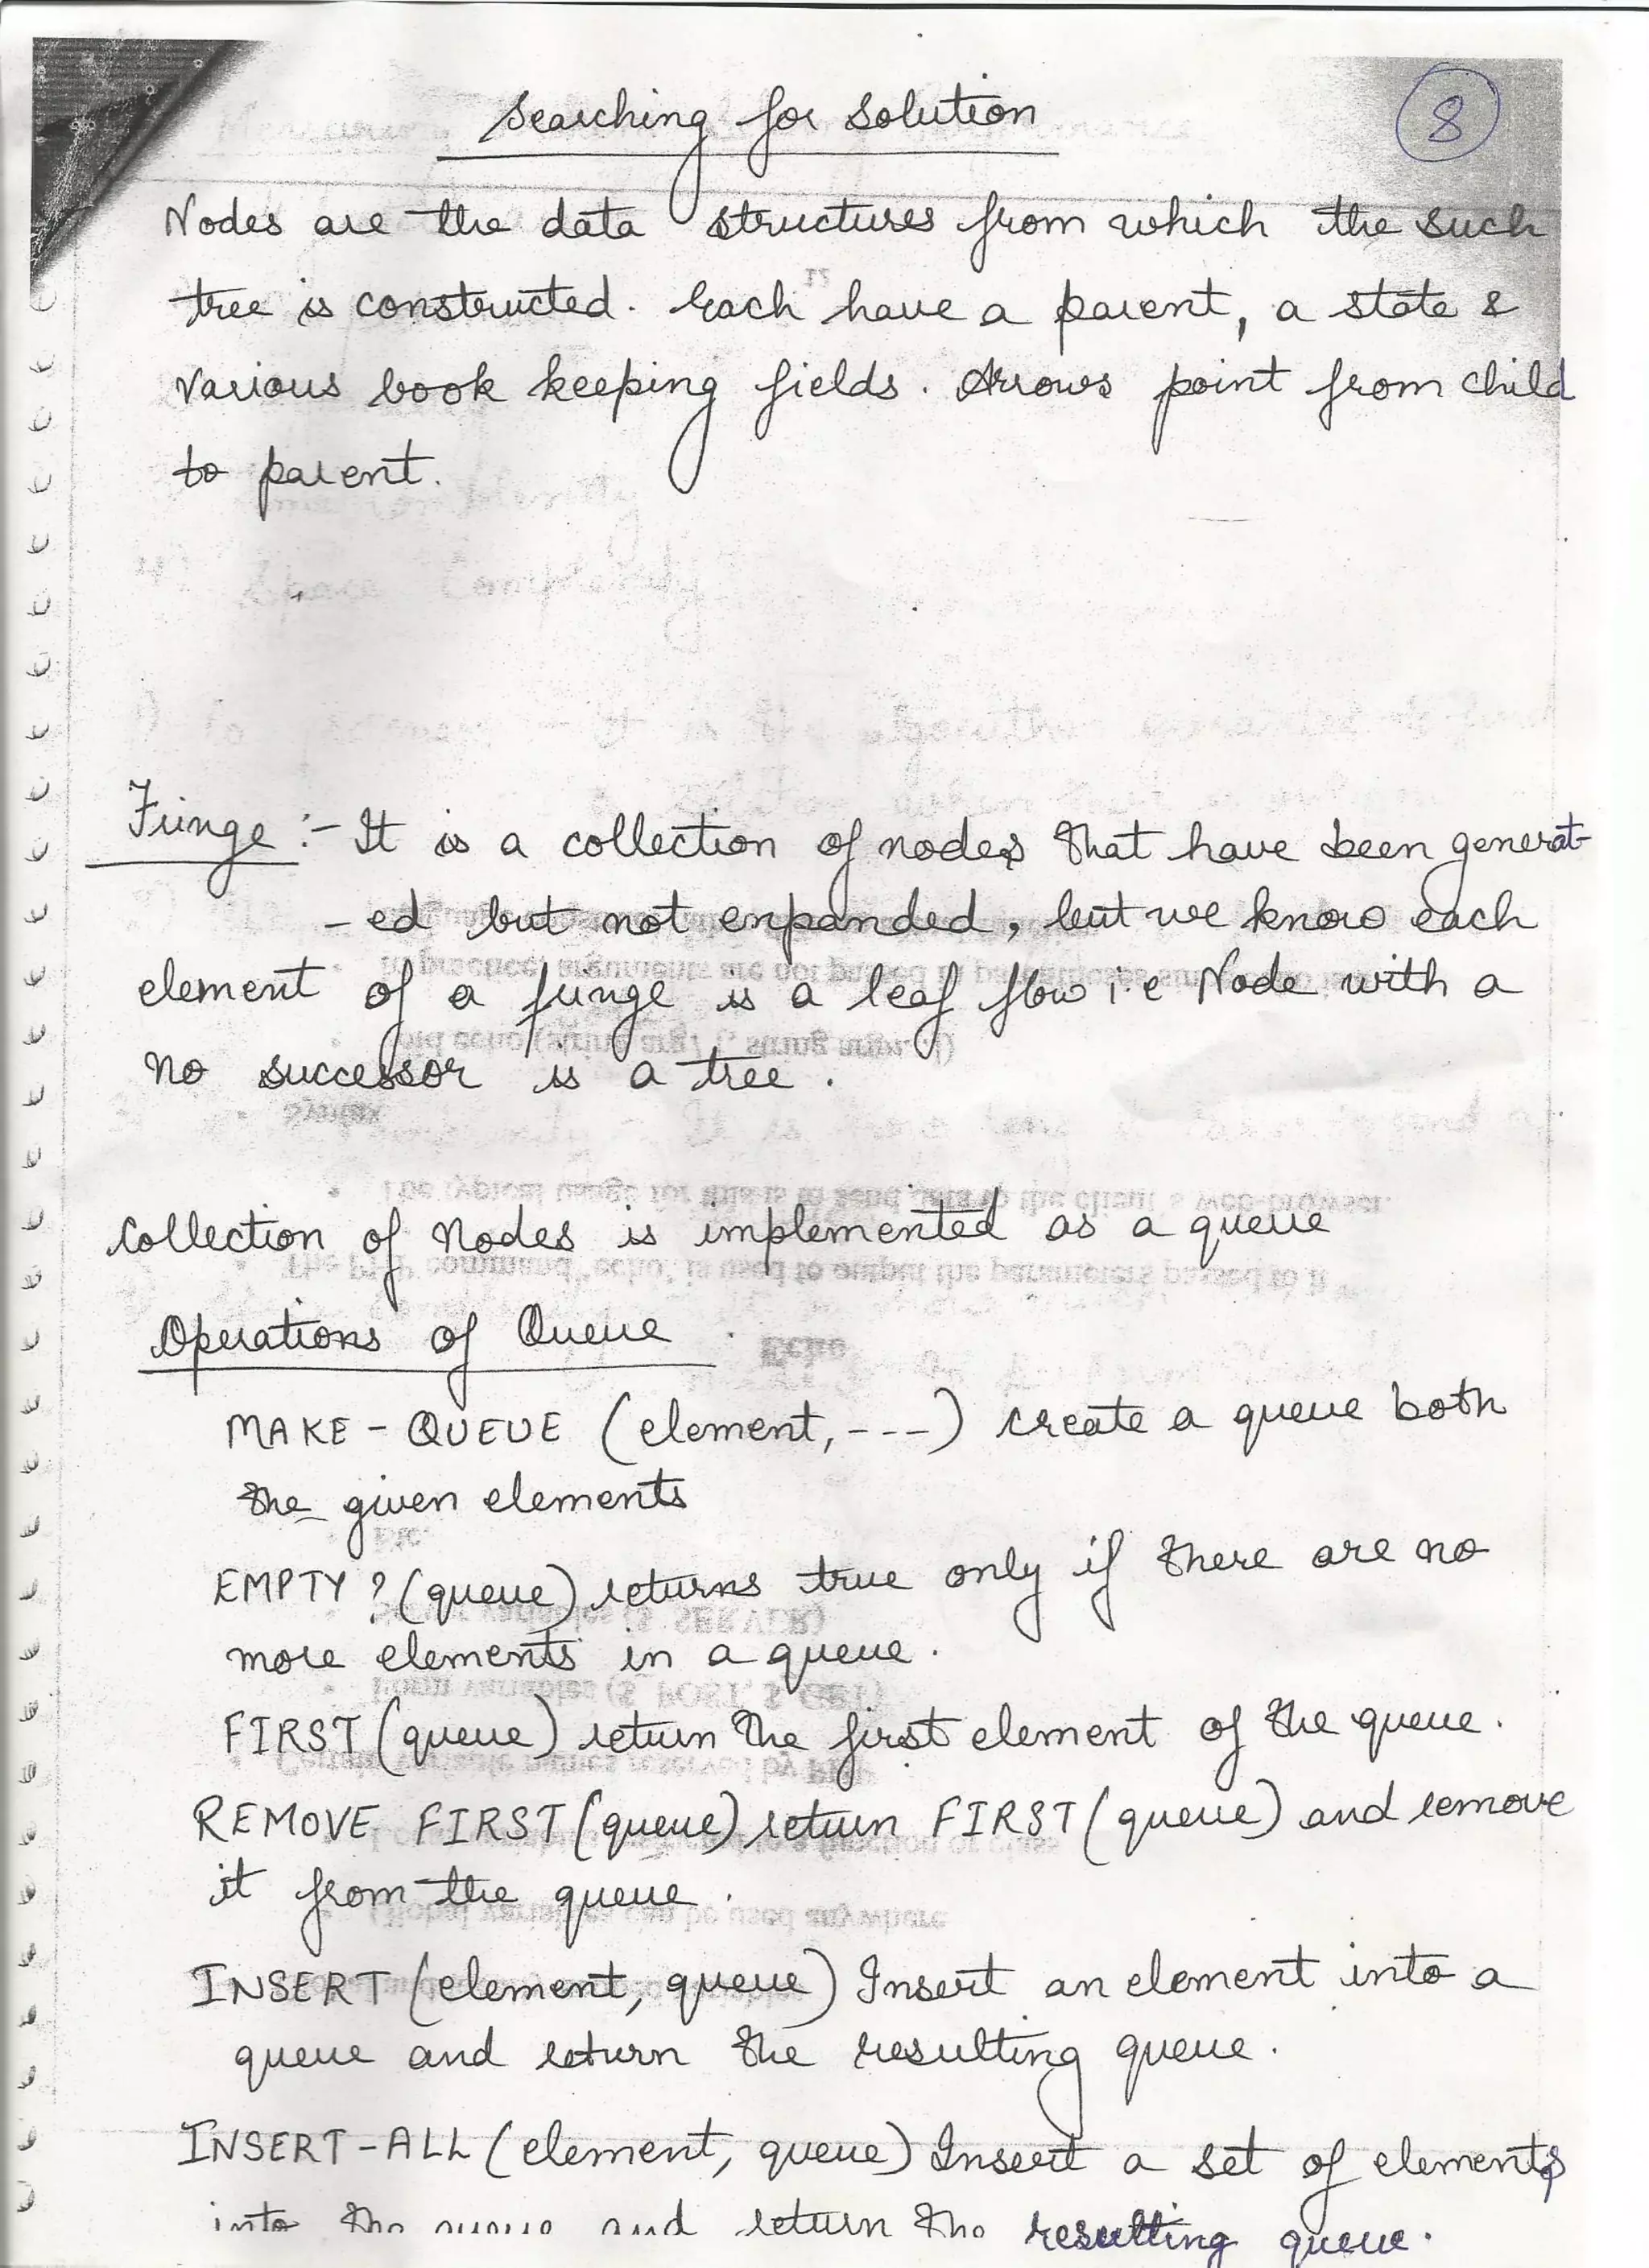 Searching for Solution
8
Nodes are the data structures from which the such
tree is constructed. Each have a parent, a state &
various book keeping fields. Arrows point from child
to parent.
Fringe :- It is a collection of nodes that have been generat-
- ed but not expanded, but we know each
element of a fringe is a leaf flow i.e Node with a
no successor is a tree.
Collection of Nodes is implemented as a queue
Operations of Queue
MAKE-QUEUE (element, ---) create a queue both
the given elements
EMPTY ? (queue) returns true only if there are no
more elements in a queue.
FIRST (queue) return the first element of the queue.
REMOVE FIRST (queue) return FIRST (queue) and remove
it from the queue.
INSERT (element, queue) Insert an element into a
queue and return the resulting queue.
INSERT-ALL (element, queue) Insert a set of elements
into the queue and return the resulting queue.